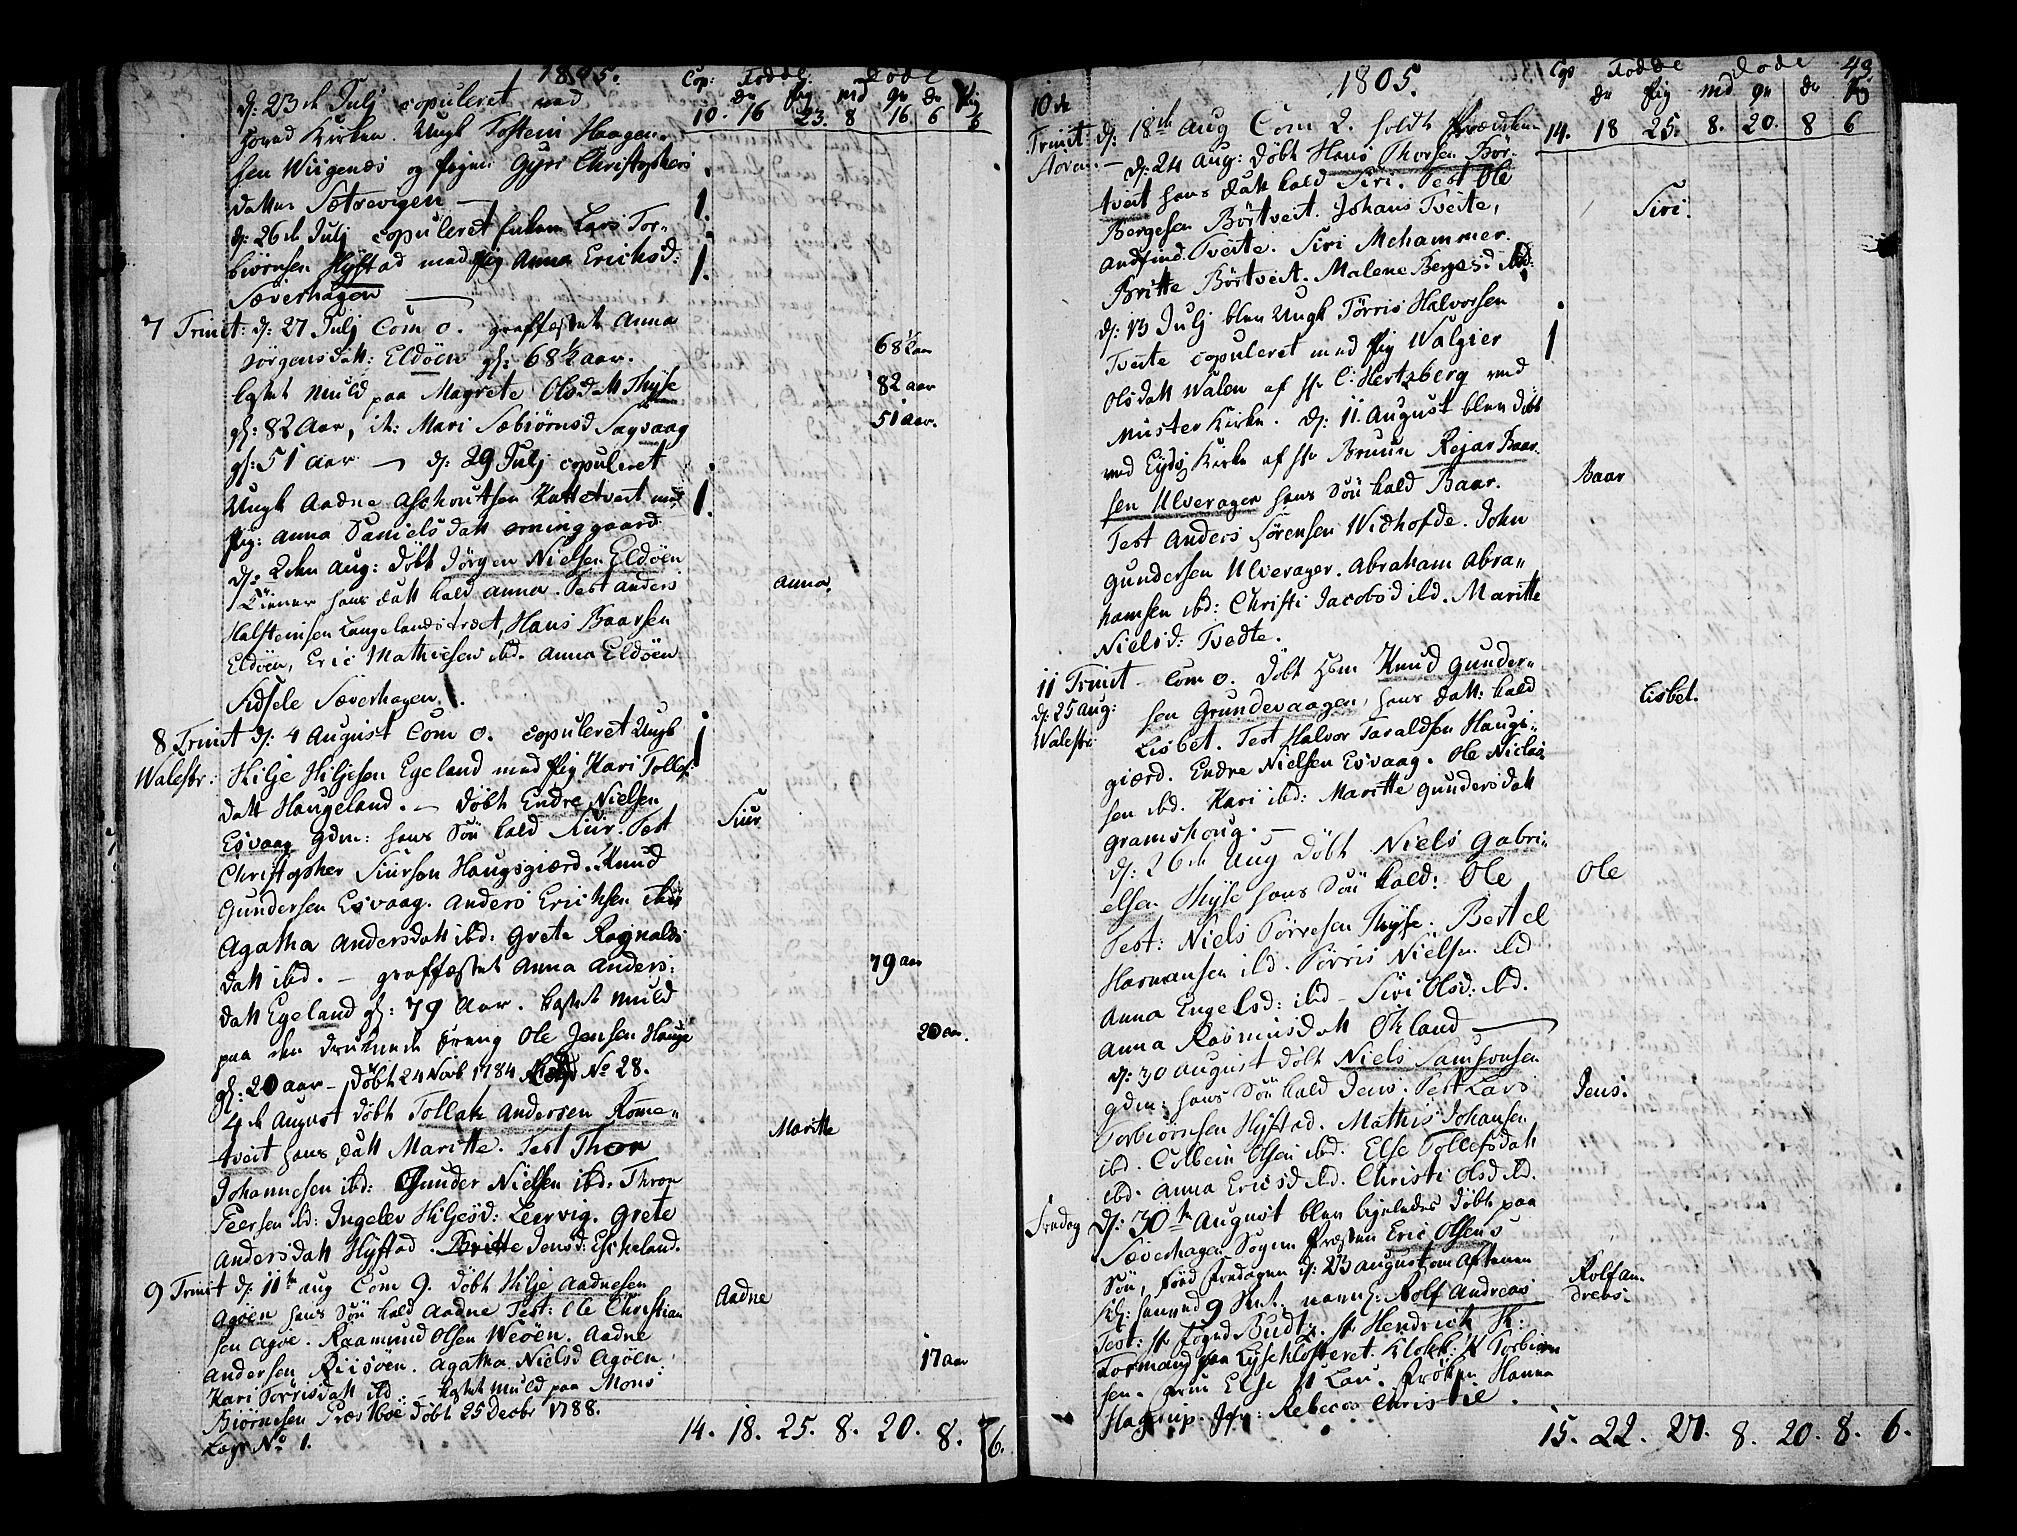 1805.
Cop: Fødde. Døde
Dr Pig Md Qv Dr Pig
10. 16 23. 8 16 6 6
d: 23de Julj copuleret ved
hoved Kirken. Ungk Tostein Haagen-
sen Wiigenæs og Pigen Gyri Christophers
datter Sætrevigen — 1.
d: 26de Julj copuleret Lars Tor-
biørnsen Hystad med Pig Anna Erichsd: 1.
Sæverhagen —
7 Trinit: d: 27 Julj Com 0. graffæstet Anna
Jørgensdatt: Eldøen gl: 68½ aar. 68½ aar
kastet Muld paa Magrete Olsdatt Thyse 82 aar
gl: 82 Aar, it: Mari Sæbiørnsd Sagvaag 51 aar.
gl: 51 aar — d: 29 Julj copuleret
Ungk Aadne Aschoutsen Kattetveit med 1.
Pig: Anna Daniels datt orninggaard
d: 2den Aug: døbt Jørgen Nielsen Eldøen
hans datt kald Anna. Test Anders Anna.
Halsteinsen Langelandstræet, Hans Baarsen
Eldøen, Eric Mathiesen ibd. Anna Eldøen
Sidsele Sæverhagen.
8 Trinit d: 4 August Com 0. copuleret Ungk 1
Walestr: Hilje Hiljesen Egeland med Pig Kari Tollefs
datt Haugeland. — døbt Endre Nielsen
Esvaag gdm: hans Søn kald Siur. Test Siur
Christopher Siursen Haugsgiærd. Knud
Gundersen Esvaag. Anders Erichsen ibid
Agatha Andersdatt ibd: Grete Ragnalds
datt ibd. — graffæstet Anna Anders: 79 aar
datt Egeland gl: 79 Aar. kastet Muld
paa den druknede Dreng Ole Jensen Hauge 20 aar.
gl: 20 aar — døbt 24 Novb 1784 No 28.
4de August døbt Tollak Andersen Rome-
tveit hans datt Maritte. Test Thor Maritte
Johannesen ibd: Gunder Nielsen ibd. Thron
Peersen ibd: Ingelev Hiljesd: Leervig. Grete
Andersdatt Hystad. Britte Jensd: Escheland.
9 Trinit d: 11te Aug Com 9. døbt Hilje Aadnesen
Agøen hans Søn kald Aadne Test: Ole Christian Aadne
sen Agøe. Raamund Olsen Weøen. Aadne
Andersen Riisøen. Agatha Nielsd Agøen. 17 aar
Kari Torrisdatt ibd: — kastet Muld paa Mons
Biørnesen Præstboe døbt 25 Decbr 1788.
No 1. 14. 18. 25. 8. 20. 8. 6.
1805. 43
Cop Fødde Døde
Dr Pig Md Qv Dr Pig
14. 18 25. 8. 20. 8 6
10de
Trinit: d: 18de Aug Com 2. holdt Prædiken
Stora. — d: 24 Aug: døbt Hans Thorsen Bør-
tveit hans datt kald Siri. Test Ole Siri.
Bergesen Børtveit. Johans Tveite,
Andfind Tveite. Siri Mehammer.
Britte Børtveit. Malene Bergesd ibd:
d: 13 Julj blev Ungk Tørris Halvorsen
Tveite copuleret med Pig Walgier 1
Olsdatt Walen af Hr C: Hertzberg ved
Muster Kirke. d: 11. August blev døbt
ved Eyds Kirke af Hr Bruun Rejar Baar-
sen Ulverager hans Søn kald Baar. Baar
Test Anders Sørensen Widhofde. John
Gundersen Ulverager. Abraham Abra-
hamsen ibd: Christi Jacobsd ibd. Maritte
Nielsd: Tvedte.
11 Trinit — Com 0. døbt Knud Gunder-
d: 25 Aug: sen Grundevaagen, hans datt: kald Lisbet.
Walestr: Lisbet. Test Halvor Taraldsen Haugs-
giærd. Endre Nielsen Esvaag. Ole Niclas
sen ibd. Kari ibd: Maritte Gundersdatt
Gramshoug. —
d: 26de Aug døbt Niels Gabri-
elsen Thyse hans Søn kald: Ole Ole
Test: Niels Tørresen Thyse. Bertel
Harmansen ibd. Tørris Nielsen ibd
Anna Engelsd: ibd — Siri Olsd: ibd.
Anna Rasmusdatt Økland —
d: 30 August døbt Niels Samsonsen
gdm: hans Søn kald Jens. Test Lars Jens.
Torbiørnsen Hystad. Mathis Johansen
ibd. Colbein Olsen ibd. Else Tollefsdatt
ibd. Anna Ericsd ibd. Christi Olsd ibd.
Fredag d: 30te August blev ligeledes døbt paa
Sæverhagen Sogne Præsten Eric Olsens
Søn, født Fredagen d: 23 August om Aftenen
Kl: 9 Slet. navnl: Rolf Andreas Rolf An-
Test: Hr Foged Budtz. Hr Hendrich dreas.
Formand paa Lyseklosteret. Klokk: Torbiørn
sen. Frue Else Lau. Frøken Hanna
Hagerup. Jfr: Rebecca Christie.
15. 22. 27. 8. 20. 8. 6.